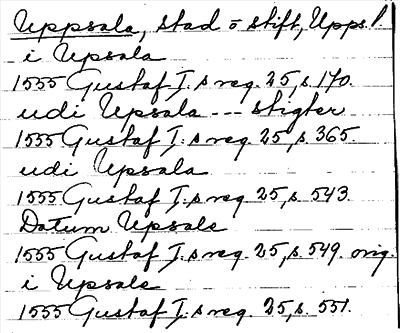 Uppsala, stad o stift, Upps. l
i Upsala
1555 Gustaf I.s reg. 25, s. 170.
udi Upsala --- stigter
1555 Gustaf I.s reg. 25, s. 365.
udi Upsala
1555 Gustaf I.s reg. 25, s. 543.
Datum Upsale
1555 Gustaf I.s reg. 25, s. 549. orig.
i Upsale
1555 Gustaf I.s reg. 25, s. 551.